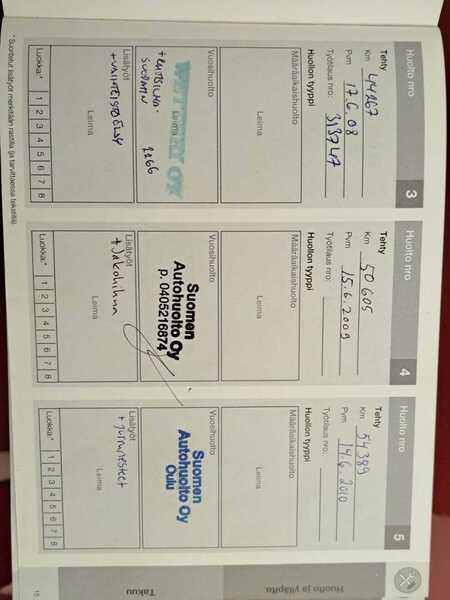 Huolto nro 3
Tehty
Km 44267
Pvm 17.6.08
Työtilaus nro: 313747
Huollon tyyppi
Määräaikaishuolto
Leima
Vuosihuolto
WETTERI OY
Leima
SUODATIN
2066
Lisätyöt
Leima
Luokka:* 1 2 3 4 5 6 7 8
Huolto nro 4
Tehty
Km 50605
Pvm 15.6.2009
Työtilaus nro:
Huollon tyyppi
Määräaikaishuolto
Leima
Vuosihuolto
Suomen
Autohuolto Oy
p. 0405216874
Lisätyöt
+ Jakohihna
Leima
Luokka:* 1 2 3 4 5 6 7 8
Huolto nro 5
Tehty
Km 54389
Pvm 14.6.2010
Työtilaus nro:
Huollon tyyppi
Määräaikaishuolto
Leima
Vuosihuolto
Suomen
Autohuolto Oy
Oulu
Lisätyöt
Leima
Luokka:* 1 2 3 4 5 6 7 8
* Suoritetut lisätyöt merkitään rastilla (ja tarvittaessa tekstillä)
Huolto ja ylläpito
Takuu
15